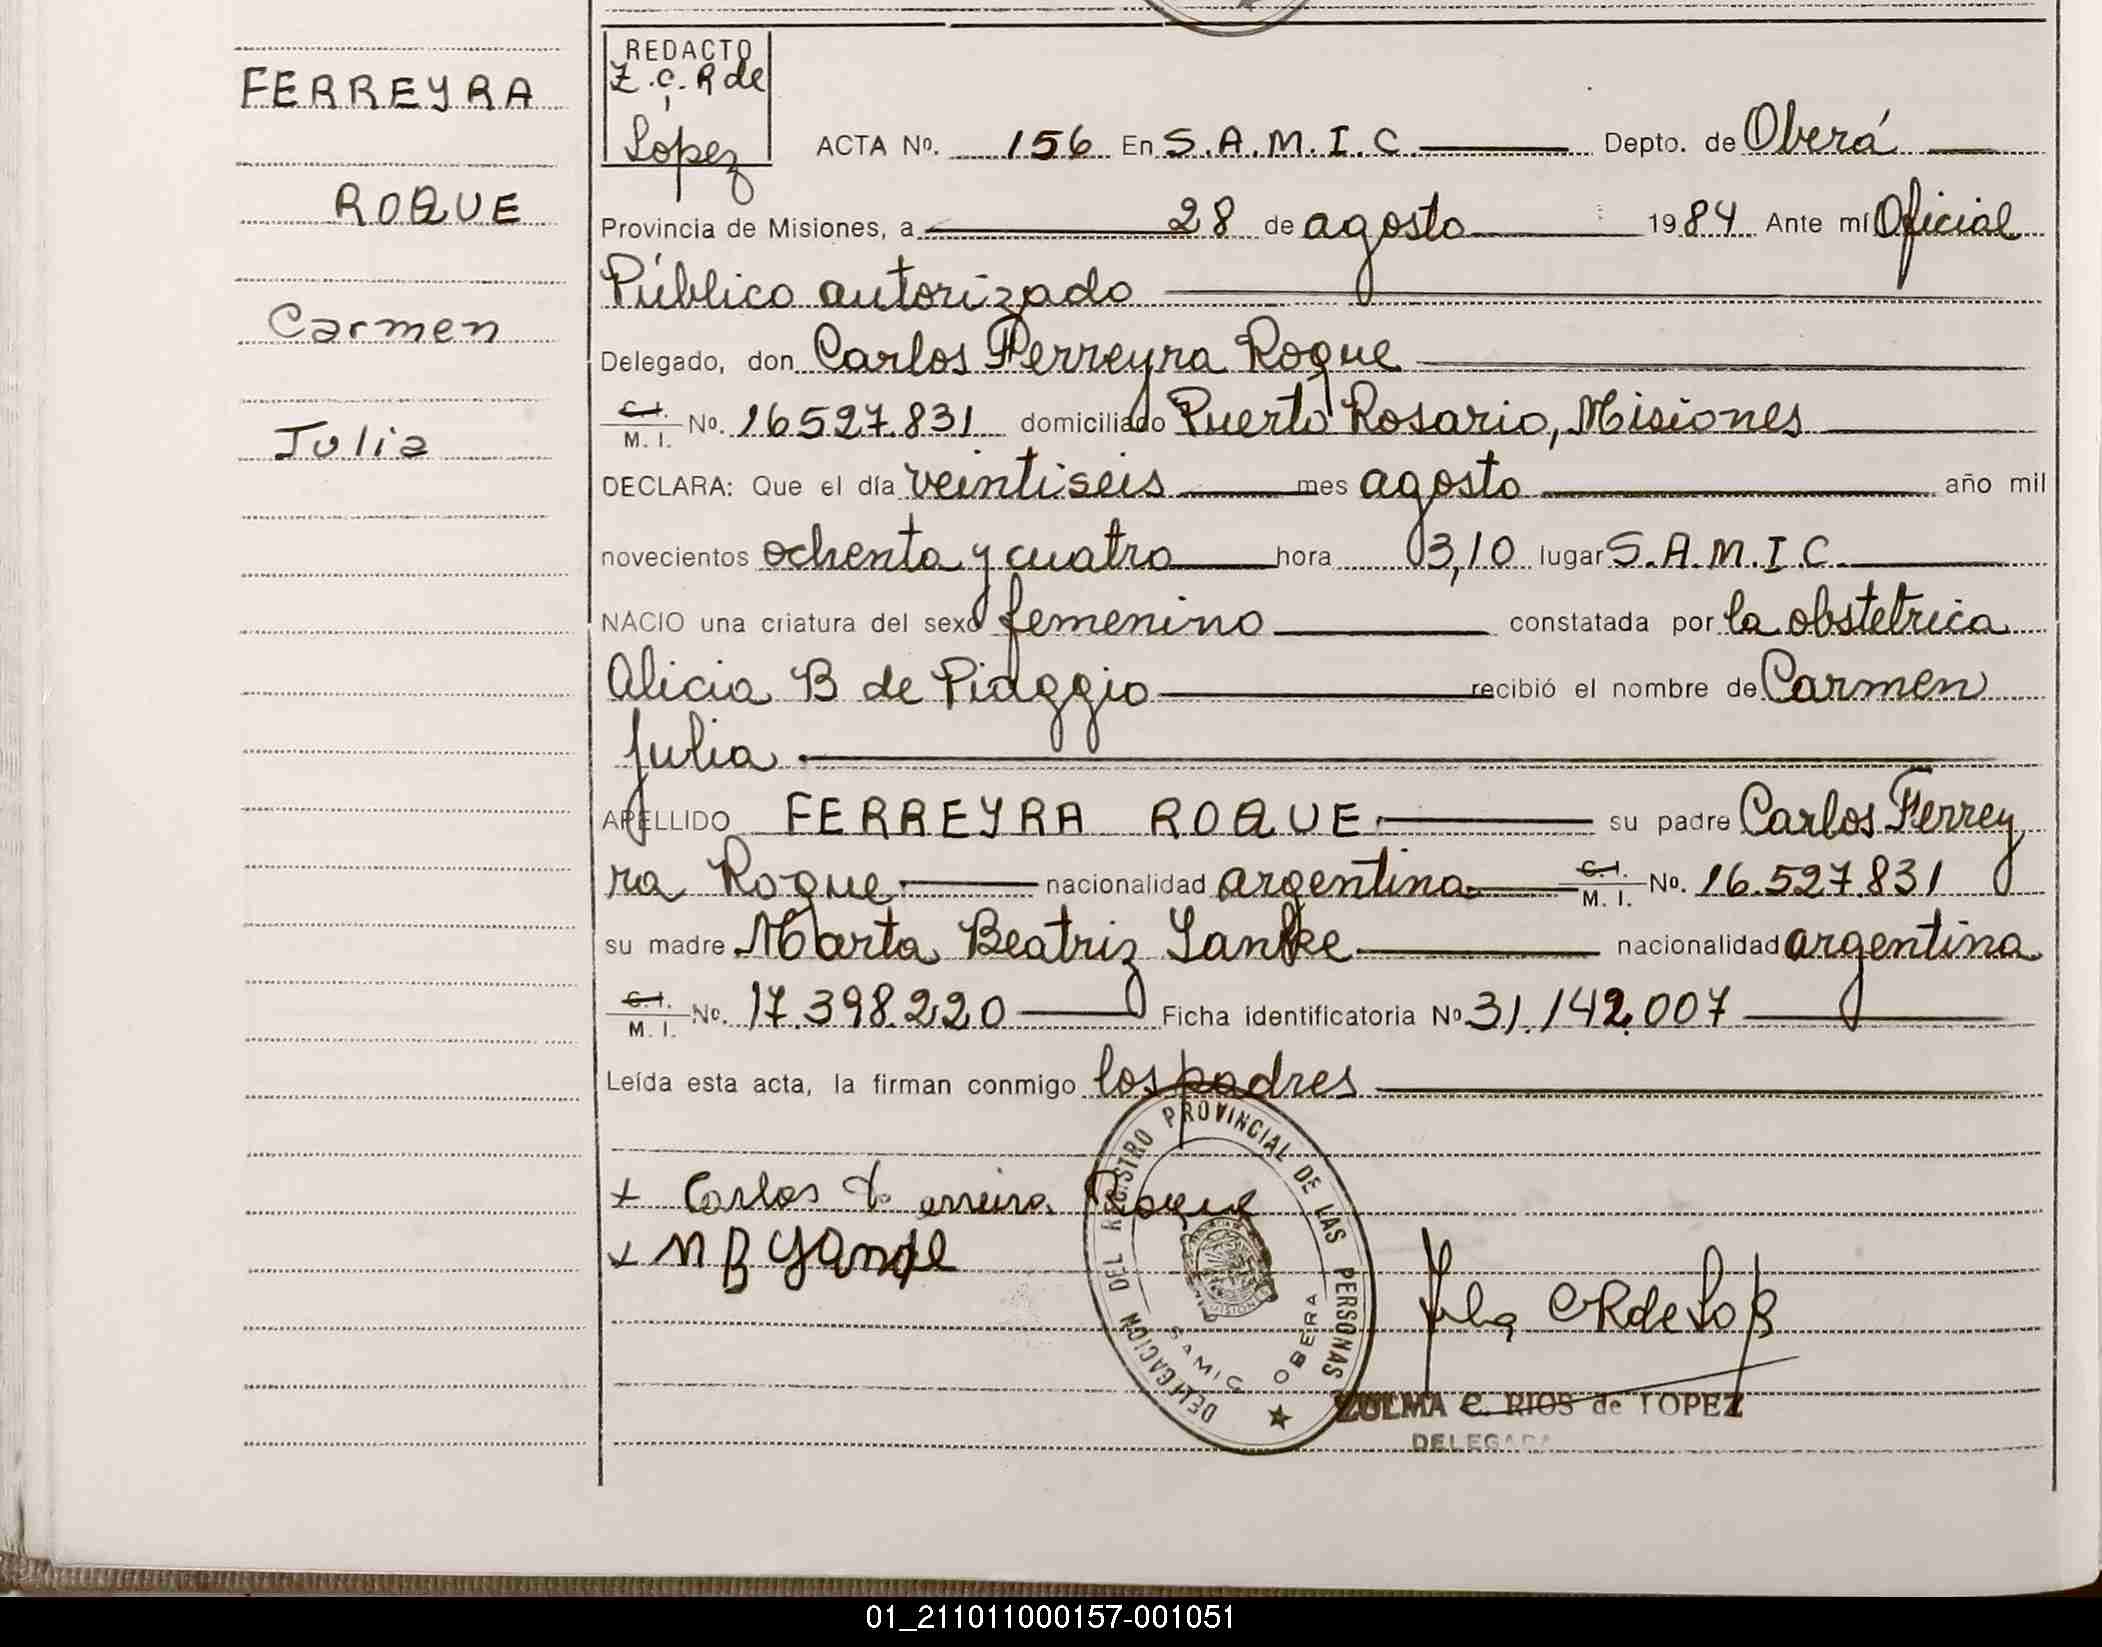 FERREYRA
ROQUE
Carmen
Julia
REDACTO
Z.C.R de
López
ACTA No. 156 En S.A.M.I.C. Depto. de Oberá
Provincia de Misiones, a 28 de agosto 1984 Ante mí Oficial
Público autorizado
Delegado, don Carlos Ferreyra Roque
C.I. M.I. No. 16.527.831 domiciliado Puerto Rosario, Misiones
DECLARA: Que el día veintiseis mes agosto año mil
novecientos ochenta y cuatro hora 03,10 lugar S.A.M.I.C.
NACIO una criatura del sexo femenino constatada por la obstetrica
Alicia B de Piaggio recibió el nombre de Carmen
Julia
APELLIDO FERREYRA ROQUE su padre Carlos Ferrey
ra Roque nacionalidad argentina C.I. M.I. No. 16.527.831
su madre Marta Beatriz nacionalidad argentina
C.I. M.I. No. 17.398.220 Ficha identificatoria No 31.142.007
Leída esta acta, la firman conmigo los padres
DELEGACION DEL REGISTRO PROVINCIAL DE LAS PERSONAS
SAMIC OBERA
Carlos Roque
M B
ZULMA C. RIOS de LOPEZ
DELEGADA
01_211011000157-001051